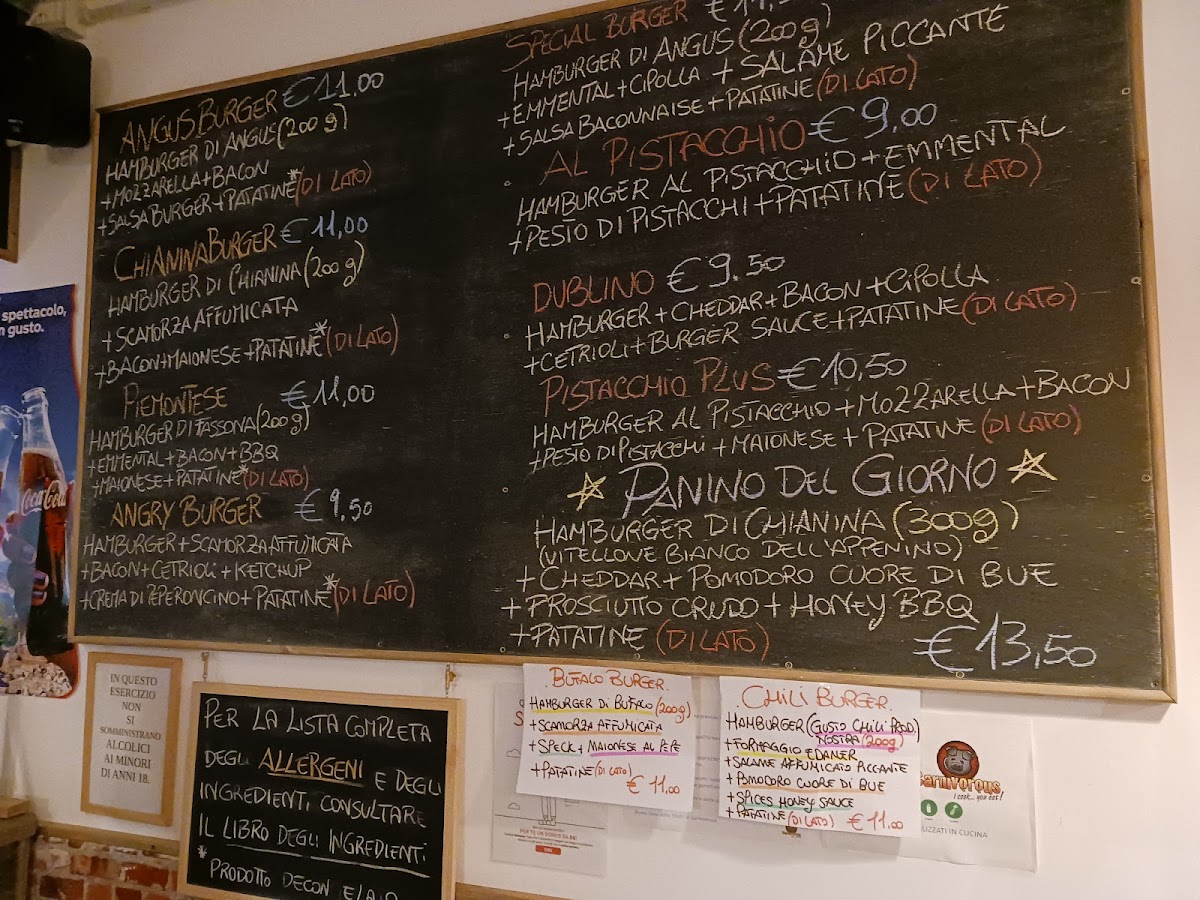 ANGUS BURGER €11,00
HAMBURGER DI ANGUS (200 g)
+MOZZARELLA+BACON
+SALSA BURGER+PATATINE*(DI LATO)
CHIANINABURGER €11,00
HAMBURGER DI CHIANINA (200 g)
+SCAMORZA AFFUMICATA
+BACON+MAIONESE+PATATINE*(DI LATO)
PIEMONTESE €11,00
HAMBURGER DI FASSONA (200g)
+EMMENTAL+BACON+BBQ
+MAIONESE+PATATINE*(DI LATO)
ANGRY BURGER €9,50
HAMBURGER+SCAMORZA AFFUMICATA
+BACON+CETRIOLI+KETCHUP
+CREMA DI PEPERONCINO+PATATINE*(DI LATO)
SPECIAL BURGER
HAMBURGER DI ANGUS (200 g)
+EMMENTAL+CIPOLLA+SALAME PICCANTE
+SALSA BACONNAISE+PATATINE (DI LATO)
AL PISTACCHIO €9,00
HAMBURGER AL PISTACCHIO+EMMENTAL
+PESTO DI PISTACCHI+PATATINE (DI LATO)
DUBLINO €9.50
HAMBURGER+CHEDDAR+BACON+CIPOLLA
+CETRIOLI+BURGER SAUCE+PATATINE (DI LATO)
PISTACCHIO PLUS €10,50
HAMBURGER AL PISTACCHIO+MOZZARELLA+BACON
+PESTO DI PISTACCHI+MAIONESE+PATATINE (DI LATO)
PANINO DEL GIORNO
HAMBURGER DI CHIANINA (300g)
(VITELLONE BIANCO DELL'APPENINO)
+CHEDDAR+POMODORO CUORE DI BUE
+PROSCIUTTO CRUDO+HONEY BBQ
+PATATINE (DI LATO)
€13,50
spettacolo,
gusto.
Coca-Cola
IN QUESTO
ESERCIZIO
NON
SI
SOMMINISTRANO
ALCOLICI
AI MINORI
DI ANNI 18.
PER LA LISTA COMPLETA
DEGLI ALLERGENI E DEGLI
INGREDIENTI CONSULTARE
IL LIBRO DEGLI INGREDIENTI.
* PRODOTTO DECONGELATO
BUFALO BURGER
HAMBURGER DI BUFALO (200g)
+SCAMORZA AFFUMICATA
+SPECK+MAIONESE AL PEPE
+PATATINE (DI LATO)
€11,00
CHILI BURGER
HAMBURGER (GUSTO CHILI PROD.
NOSTRA (200g)
+FORMAGGIO EDAMER
+SALAME AFFUMICATO PICCANTE
+POMODORO CUORE DI BUE
+SPICES HONEY SAUCE
+PATATINE (DI LATO) €11,00
Carnivorous
I cook... you eat!
IN CUCINA